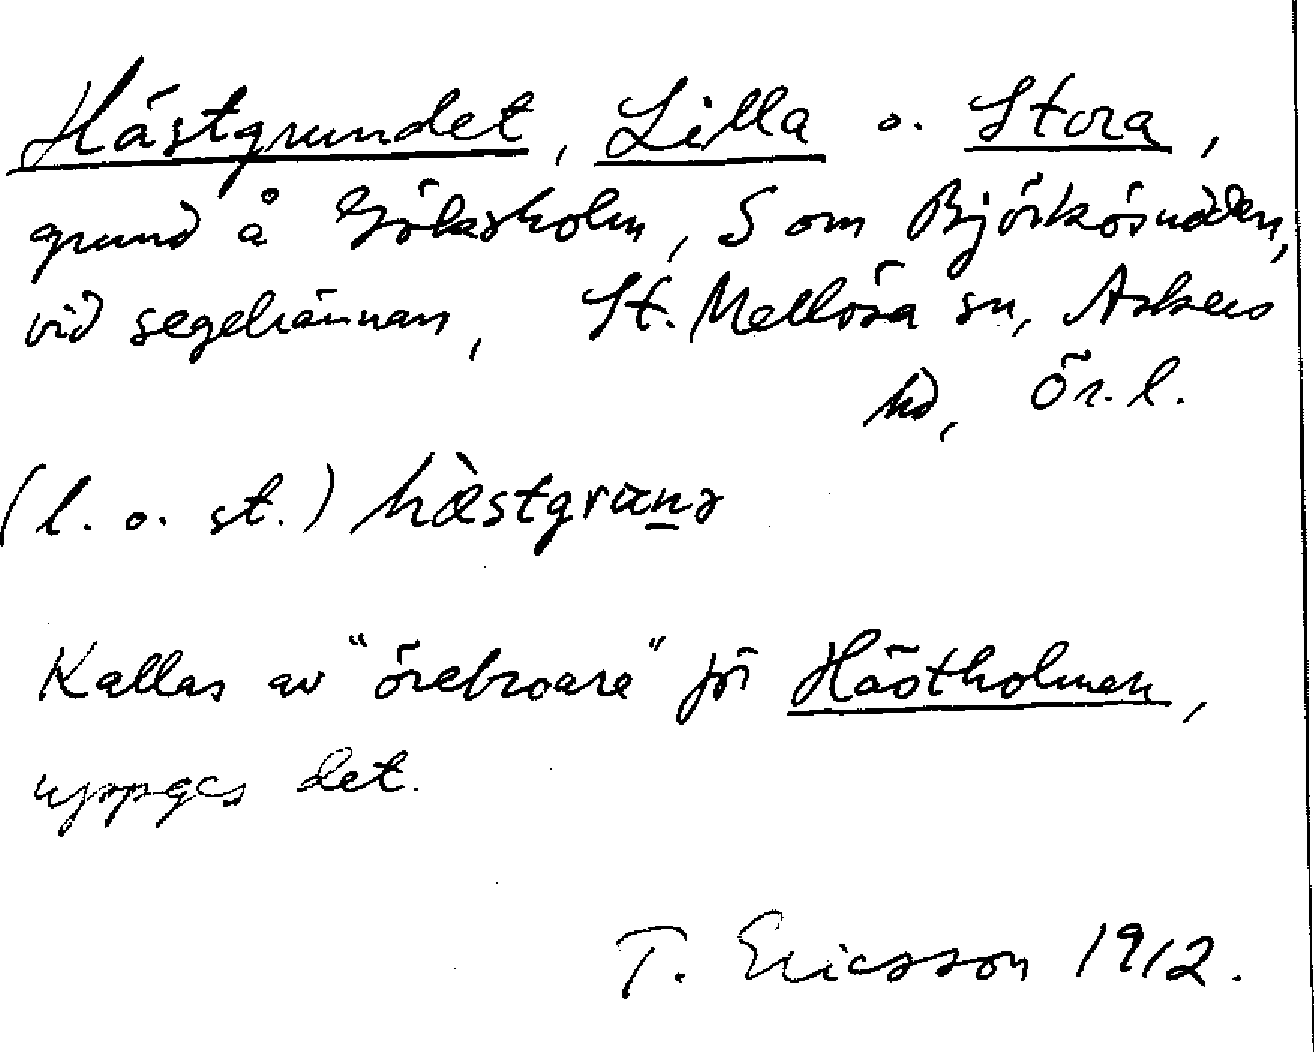 Hästgrundet, Lilla o. Stora,
grund å Göksholm, S om Björkösundden,
vid segelrännan, St. Mellösa sn, Askers
hd, Ör. l.
(l. o. st.) hæ̀stgrunə
Kallas av "örebroare" för Hästholmen,
uppges det.
T. Ericsson 1912.